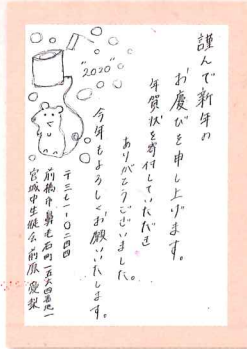 謹んで新年の
お慶びを申し上げます。
年賀状を寄付していただき
ありがとうございました。
今年もよろしくお願いいたします。
"2020"
〒三七一-〇二四四
前橋市鼻毛石町一五六四番地一
宮城中生徒会 前原